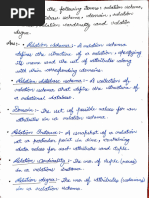 the following terms: relation schema,
database schema, domain, relation
relation cardinality and relation
degree.
Ans:- • Relation Schema: A relation schema
defines the structure of a relation, specifying
its name and the set of attributes along
with their corresponding domains.
• Relational Database Schema: A collection of
relation schemas that define the structure of
a relational database.
• Domain: The set of possible values for an
attribute in a relation schema.
• Relation Instance: A snapshot of a relation
at a particular point in time, containing
data values for each attribute and tuple.
• Relation Cardinality: The no. of tuples (rows)
in a relation.
• Relation degree: The no. of attributes (columns)
in a relation schema.